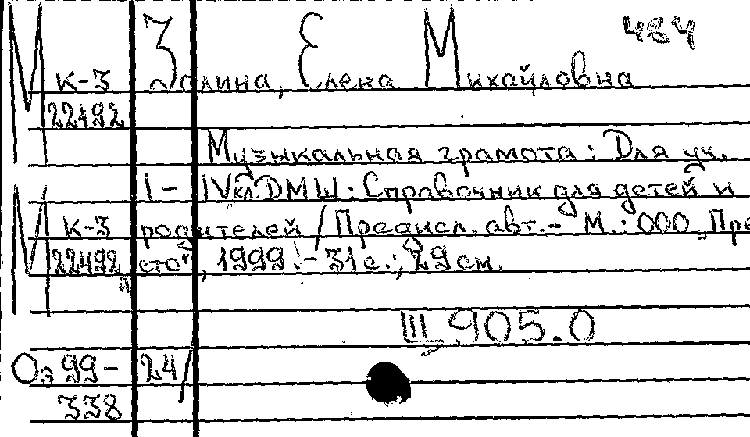 484
М К-3 Залина, Елена Михайловна
22492
Музыкальная грамота: Для уч.
М I - IV кл. ДМШ: Справочник для детей и
К-3 родителей / Предисл. авт. - М.: ООО „Пре
22492 сто", 1999. - 31 с.; 29 см.
III 905.0
Оз 99- 24/
338